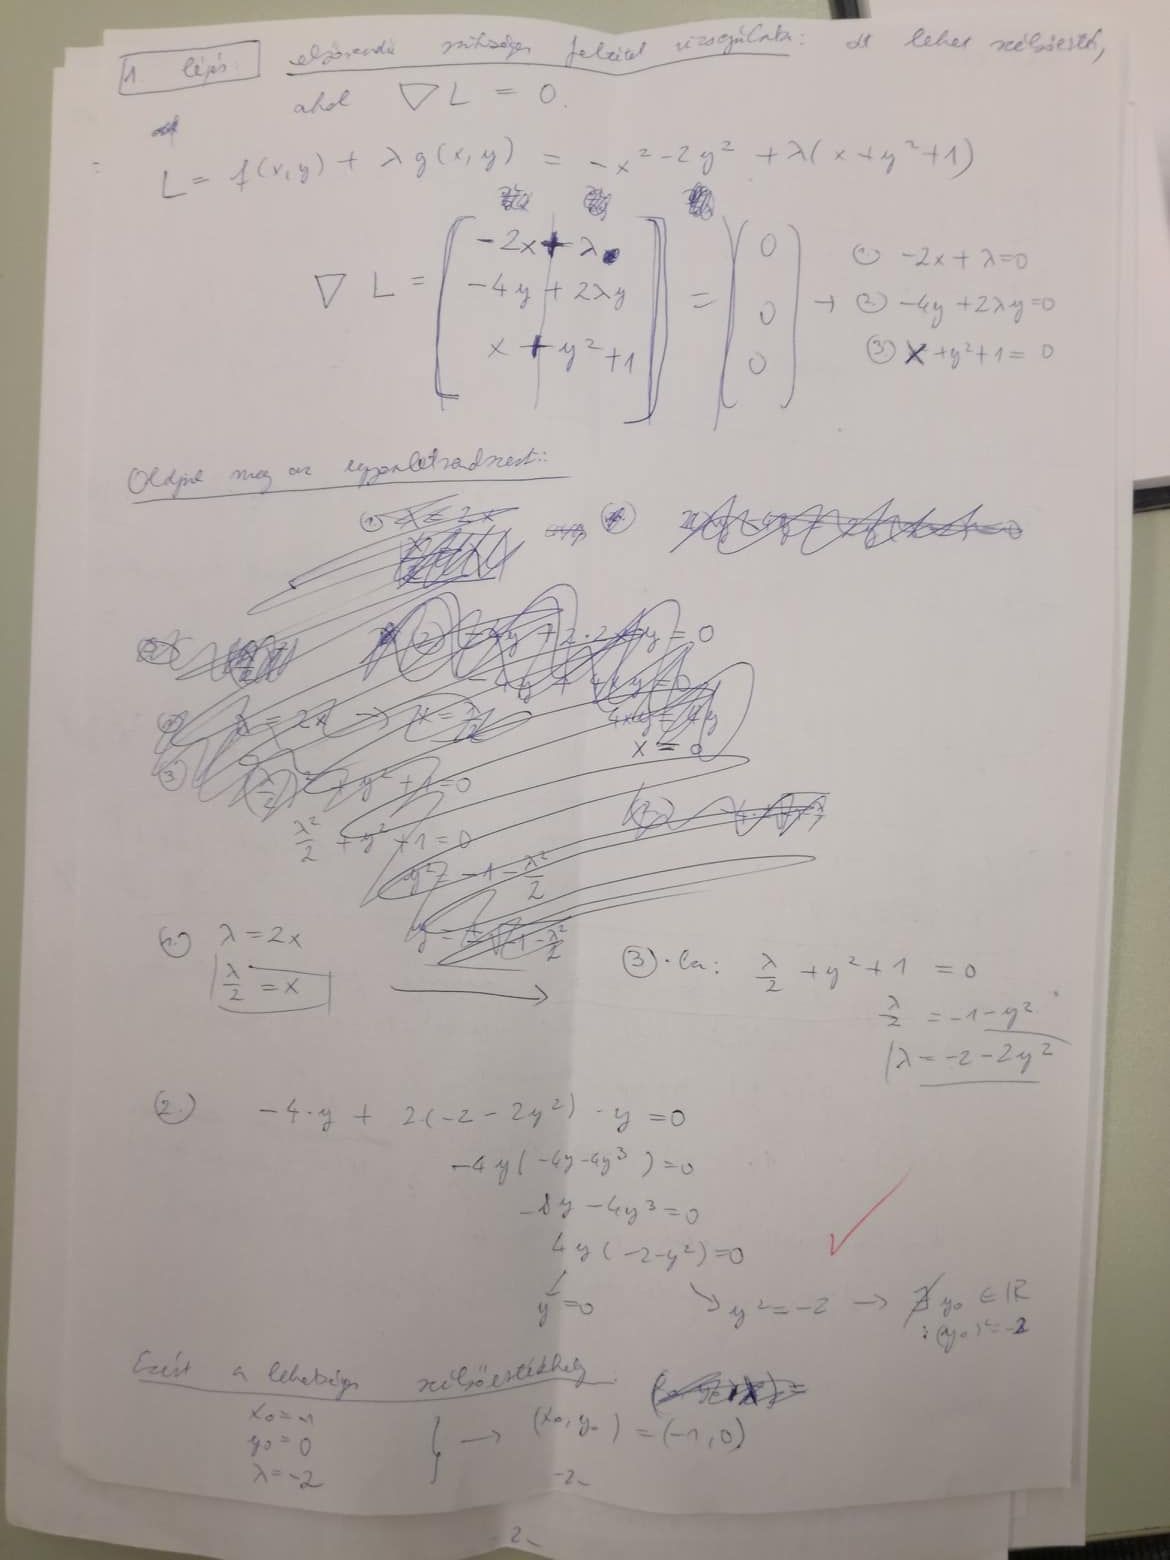 1. lépés: elsőrendű szükséges feltétel vizsgálata: ott lehet szélsőérték,
ahol ∇L = 0.
L = f(x,y) + λg(x,y) = -x² - 2y² + λ(x+y²+1)
∇L = [ -2x + λ ; -4y + 2λy ; x + y² + 1 ] = ( 0 ; 0 ; 0 ) → ① -2x + λ = 0
② -4y + 2λy = 0
③ x + y² + 1 = 0
Oldjuk meg az egyenletrendszert:
① λ = 2x
② -4y + 2·2xy = 0
-4y + 4xy = 0
λ = 2x → x = λ/2
4xy = 4y
x = 0
③ (λ/2)² + y² + 1 = 0
λ²/2 + y² + 1 = 0
y² = -1 - λ²/2
y = ±√(-1 - λ²/2)
1.) λ = 2x
λ/2 = x → ③-ba: λ/2 + y² + 1 = 0
λ/2 = -1 - y²
λ = -2 - 2y²
②.) -4·y + 2(-2-2y²)·y = 0
-4y(-4y-4y³) = 0
-8y - 4y³ = 0
4y(-2-y²) = 0
y = 0 ↘ y² = -2 → ∄ y₀ ∈ ℝ
: (y₀)² = -2
Ezért a lehetséges szélsőértékhely
x₀ = -1
y₀ = 0 } → (x₀, y₀) = (-1, 0)
λ = -2
-2-
-2-